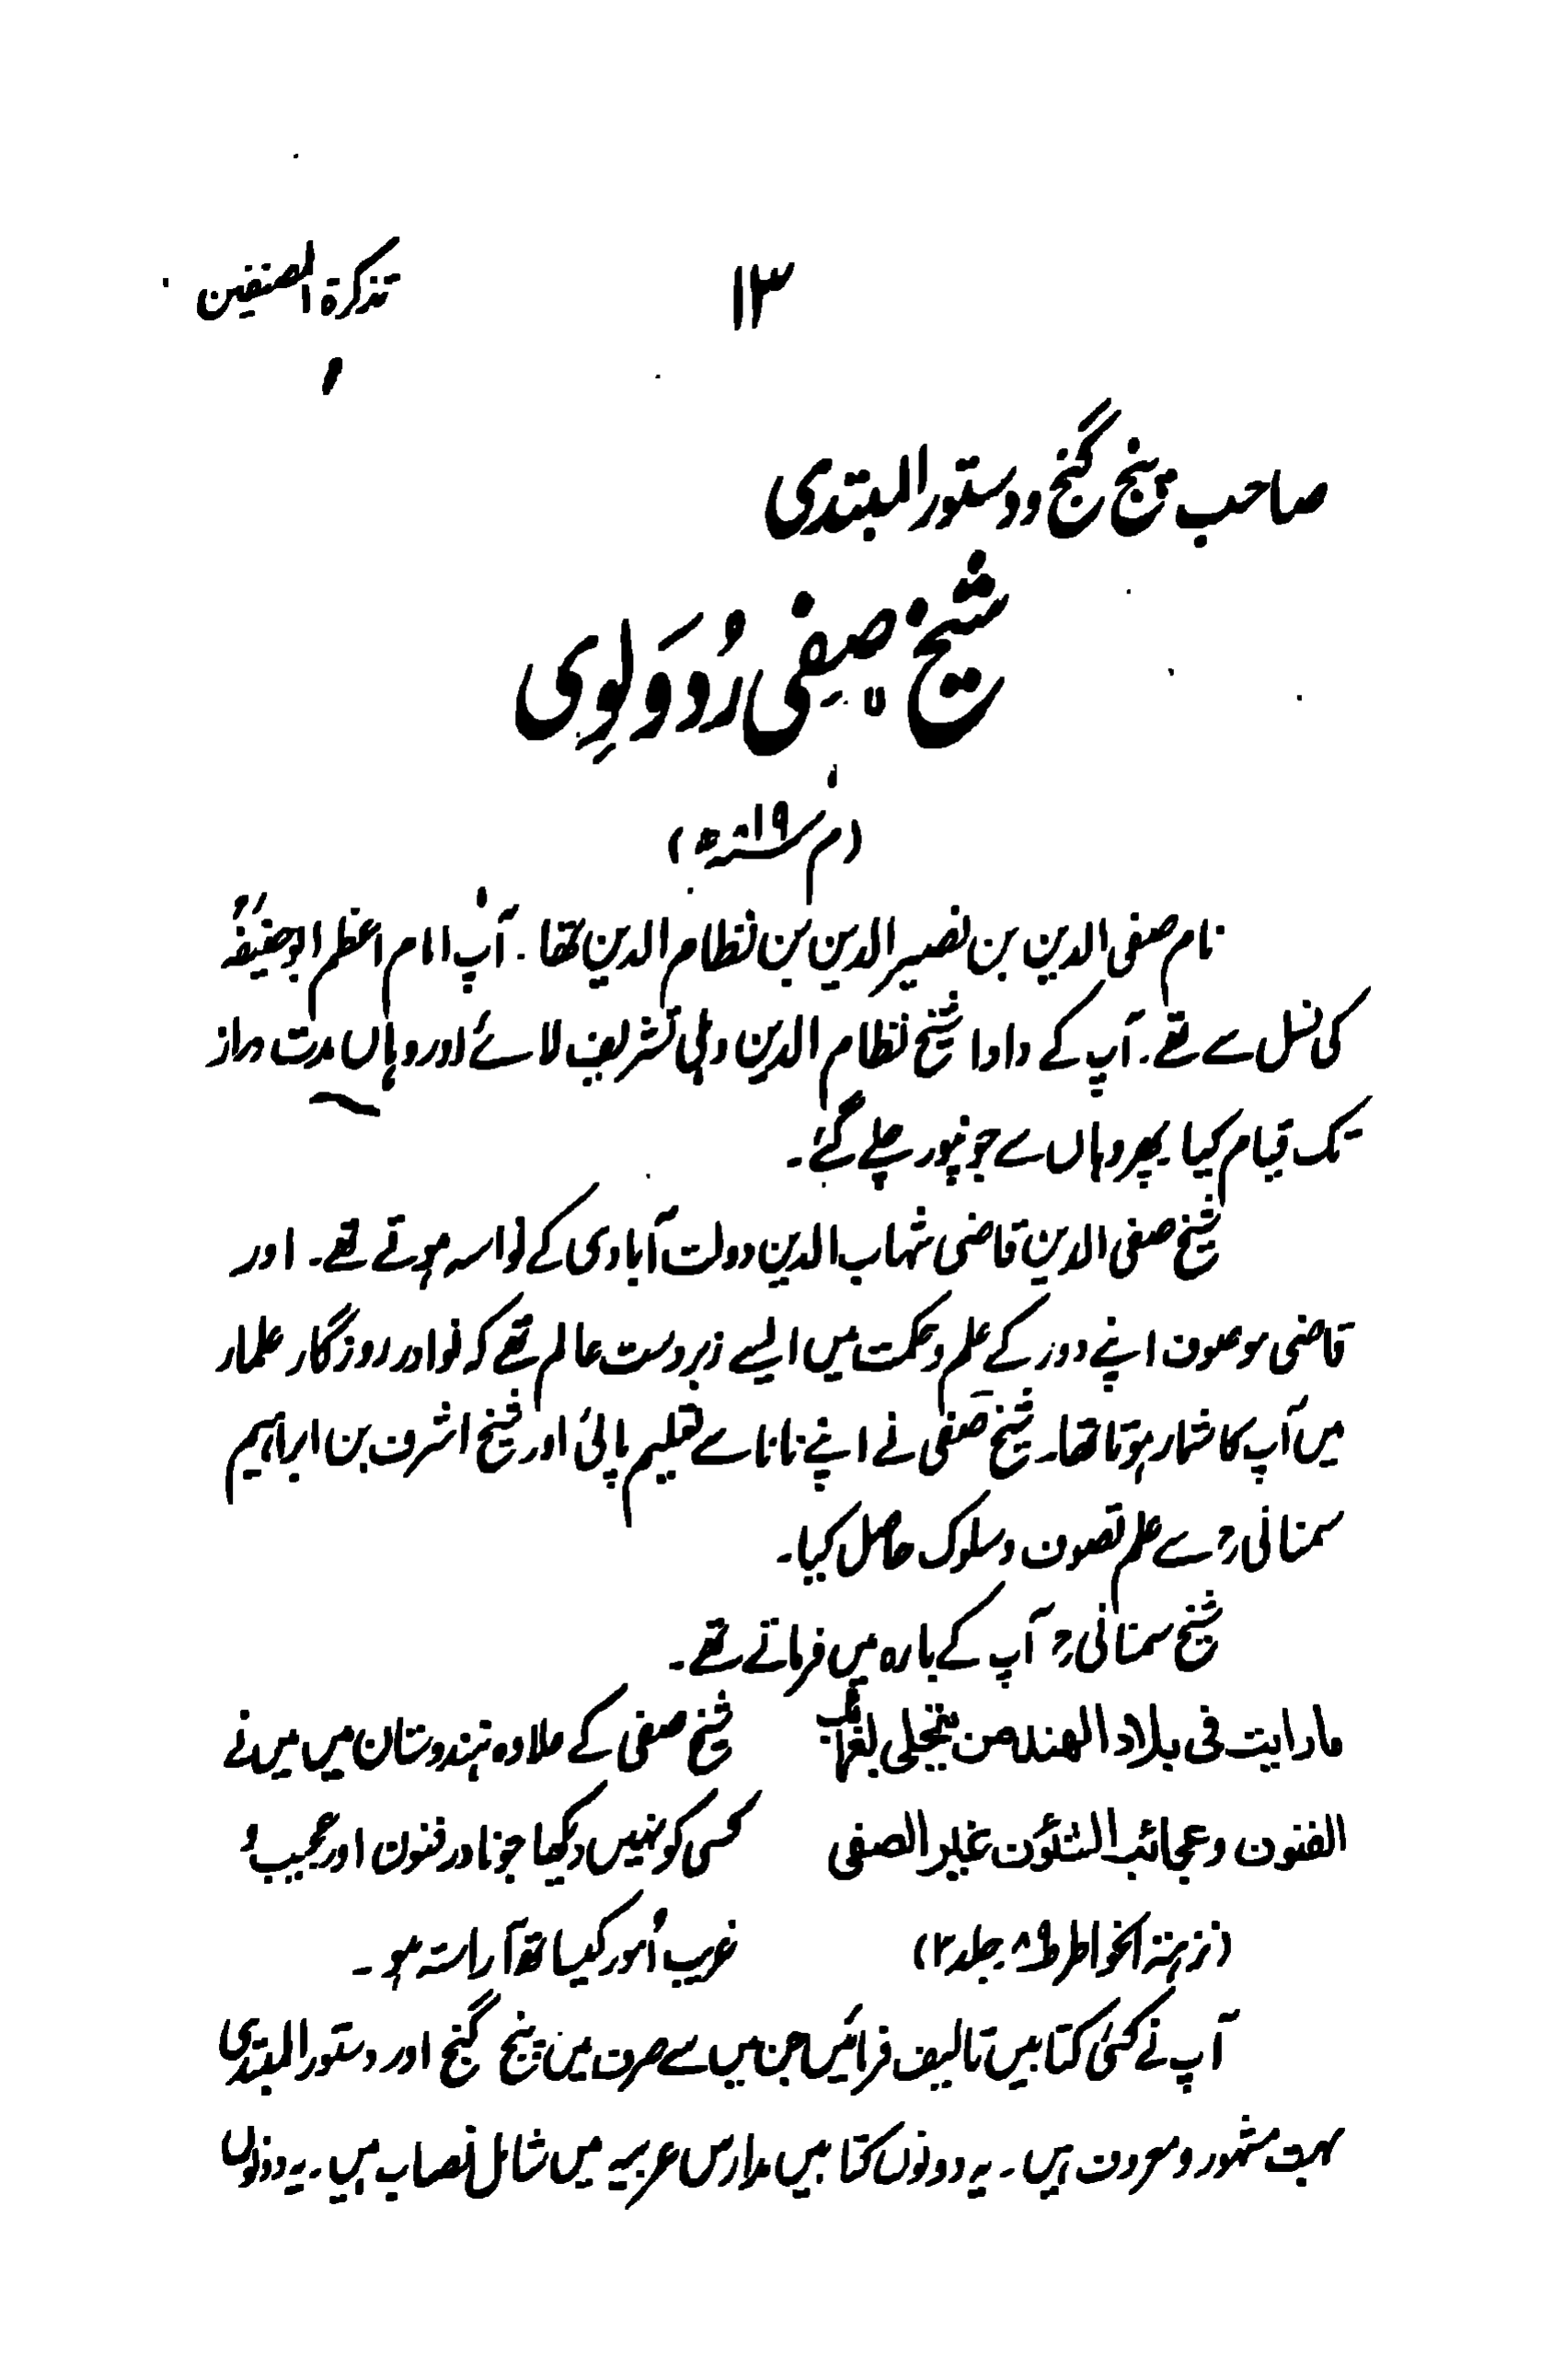 تذکرۃ المصنفین
۱۳
صاحب پنج گنج و دستور المبتدی
شیخ صفی رُدَولوِی
نام صفی الدین بن نصیر الدین بن نظام الدین تھا۔ آپ امام اعظم ابوحنیفہؒ
کی نسل سے تھے۔ آپ کے دادا شیخ نظام الدین دہلی تشریف لائے اور وہاں مدت دراز
تک قیام کیا پھر وہاں سے جونپور چلے گئے۔
شیخ صفی الدین قاضی شہاب الدین دولت آبادی کے نواسہ ہوتے تھے۔ اور
قاضی موصوف اپنے دور کے علم و حکمت میں ایسے زبردست عالم تھے کہ نوادر روزگار علماء
میں آپ کا شمار ہوتا تھا۔ شیخ صفی نے اپنے نانا سے تعلیم پائی اور شیخ اشرف بن ابراہیم
سمنانیؒ سے علم تصوف و سلوک حاصل کیا۔
شیخ سمنانیؒ آپ کے بارہ میں فرماتے تھے۔
مارایت فی بلاد الهند من یتحلی بغرائب
الفنون وعجائب الشئون غیر الصفی
(نزہتہ الخواطر ص۸۹ جلد ۳)
شیخ صفی کے علاوہ ہندوستان میں میں نے
کسی کو نہیں دیکھا جو نادر فنون اور عجیب و
غریب اُمور کیساتھ آراستہ ہو۔
آپ نے کئی کتابیں تالیف فرمائیں جن میں سے صرف میں پنج گنج اور دستور المبتدی
بہت مشہور و معروف ہیں۔ یہ دونوں کتابیں مدارس عربیہ میں شامل نصاب ہیں۔ یہ دونوں